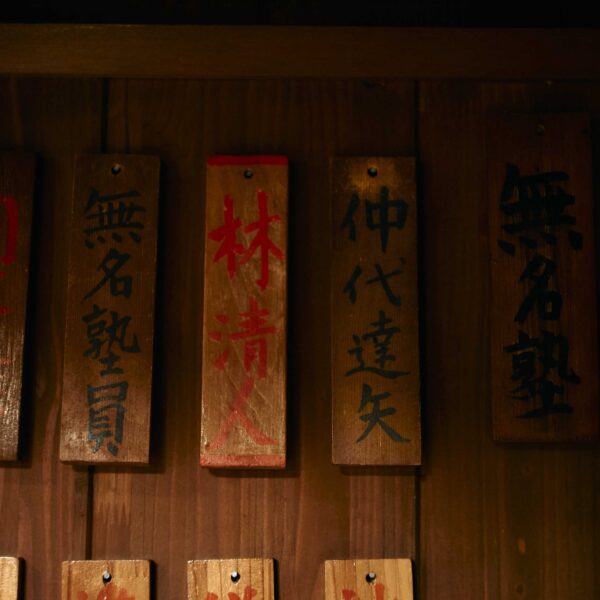 無名塾
仲代達矢
林清人
無名塾員